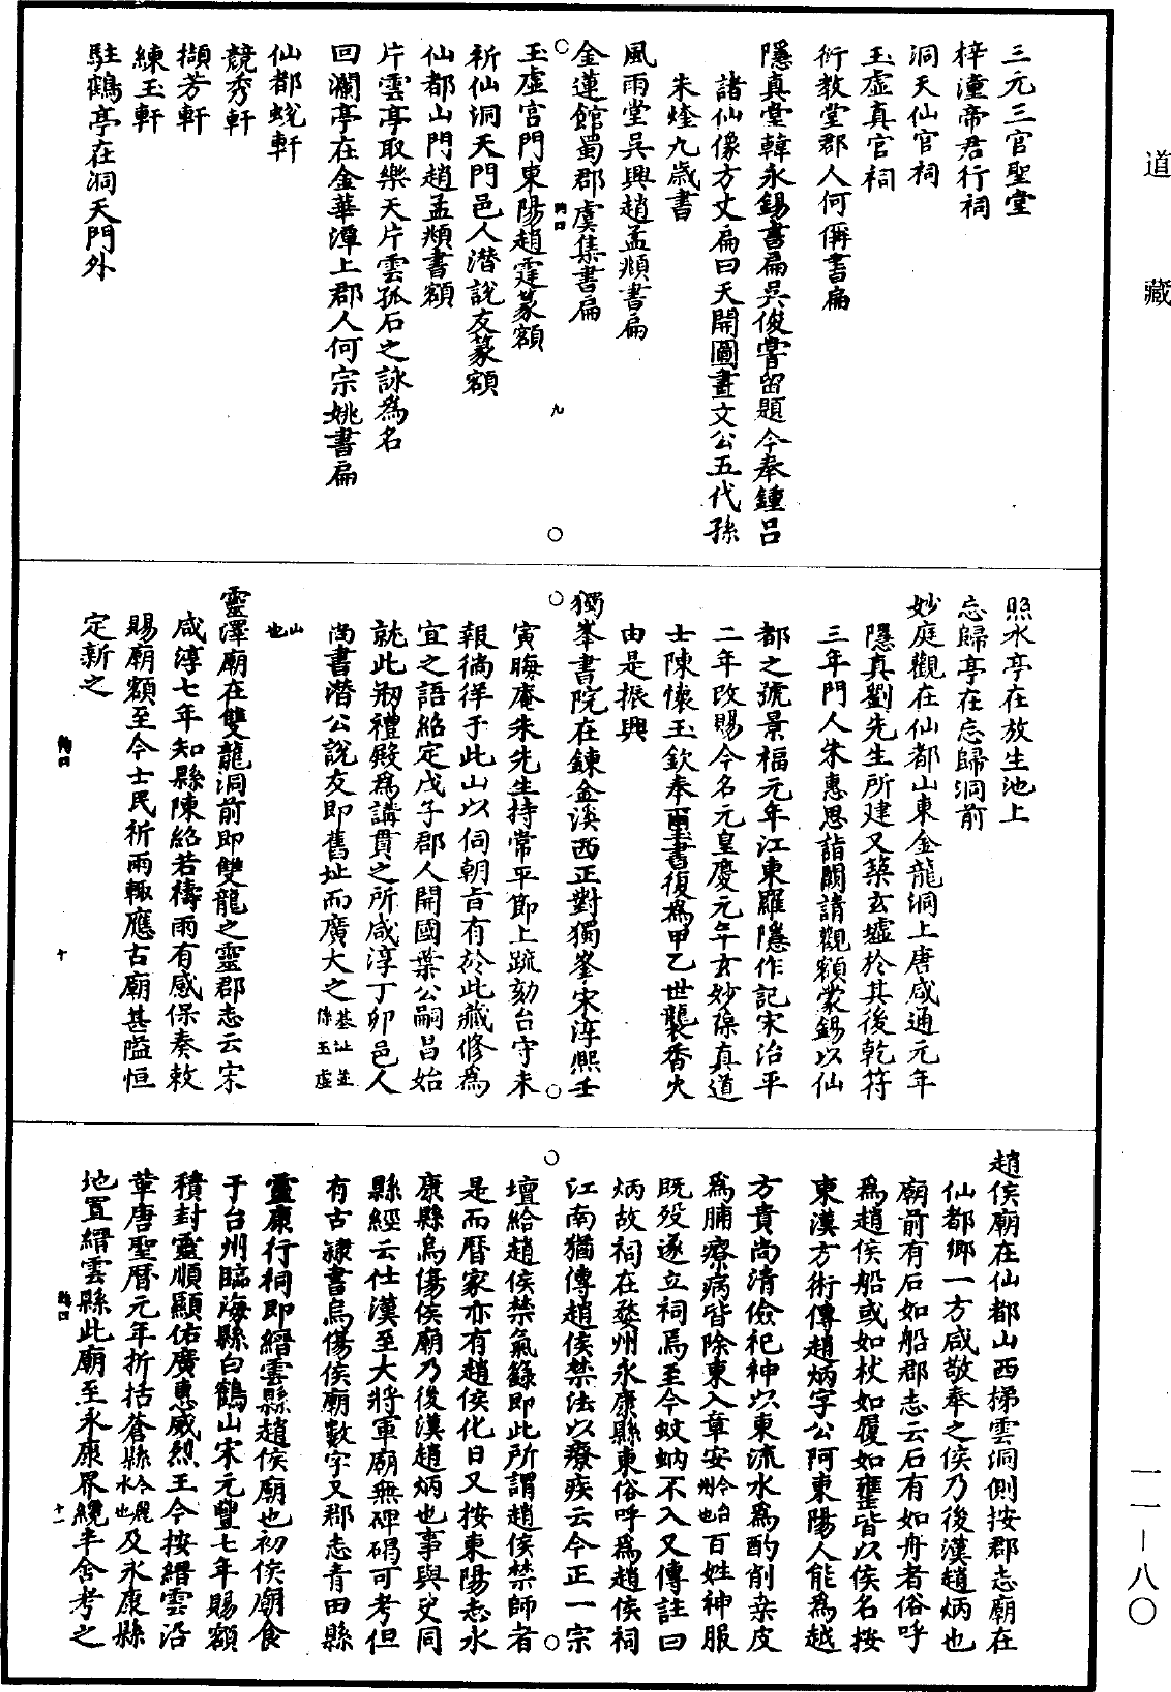 道藏
三元三官聖堂
梓潼帝君行祠
洞天仙官祠
玉虛真官祠
衍教堂郡人何偁書扁
隱真堂韓永錫書扁吳俊嘗留題今奉鍾呂
諸仙像方丈扁曰天開圖畫文公五代孫
朱煃九歲書
風雨堂吳興趙孟頫書扁
金蓮館蜀郡虞集書扁
九
玉虛宮門東陽趙霆篆額
祈仙洞天門邑人潛說友篆額
仙都山門趙孟頫書額
片雲亭取樂天片雲孤石之詠為名
回瀾亭在金華潭上郡人何宗姚書扁
仙都蛻軒
競秀軒
擷芳軒
練玉軒
駐鶴亭在洞天門外
照水亭在放生池上
忘歸亭在忘歸洞前
妙庭觀在仙都山東金龍洞上唐咸通元年
隱真劉先生所建又築玄墟於其後乾符
三年門人朱惠思詣闕請觀額蒙錫以仙
都之號景福元年江東羅隱作記宋治平
二年改賜今名元皇慶元年玄妙葆真道
士陳懷玉欽奉璽書復為甲乙世襲香火
由是振興
獨峯書院在鍊金溪西正對獨峯宋淳熙壬
寅晦庵朱先生持常平節上疏劾台守未
報徜徉于此山以伺朝旨有於此藏修為
宜之語紹定戊子郡人開國葉公嗣昌始
就此刱禮殿為講貫之所咸淳丁卯邑人
尚書潛公說友即舊址而廣大之基址並係玉虛
山也
靈澤廟在雙龍洞前即雙龍之靈郡志云宋
咸淳七年知縣陳紹若禱雨有感保奏敕
賜廟額至今士民祈雨輒應古廟甚隘恒
定新之
十
趙侯廟在仙都山西梯雲洞側按郡志廟在
仙都鄉一方咸敬奉之侯乃後漢趙炳也
廟前有石如船郡志云石有如舟者俗呼
為趙侯船或如杖如履如甕皆以侯名按
東漢方術傳趙炳字公阿東陽人能為越
方貴尚清儉祀神以東流水為酌削桑皮
為脯療病皆除東入章安今台州也百姓神服
既歿遂立祠焉至今蚊蚋不入又傳註曰
炳故祠在婺州永康縣東俗呼為趙侯祠
江南猶傳趙侯禁法以療疾云今正一宗
壇給趙侯禁氣錄即此所謂趙侯禁師者
是而曆家亦有趙侯化日又按東陽志永
康縣烏傷侯廟乃後漢趙炳也事與史同
縣經云仕漢至大將軍廟無碑碣可考但
有古隷書烏傷侯廟數字又郡志青田縣
靈康行祠即縉雲縣趙侯廟也初侯廟食
于台州臨海縣白鶴山宋元豐七年賜額
積封靈順顯佑廣惠威烈王今按縉雲沿
革唐聖曆元年折括蒼縣今麗水也及永康縣
地置縉雲縣此廟至永康界纔半舍考之
十一
一一—八〇